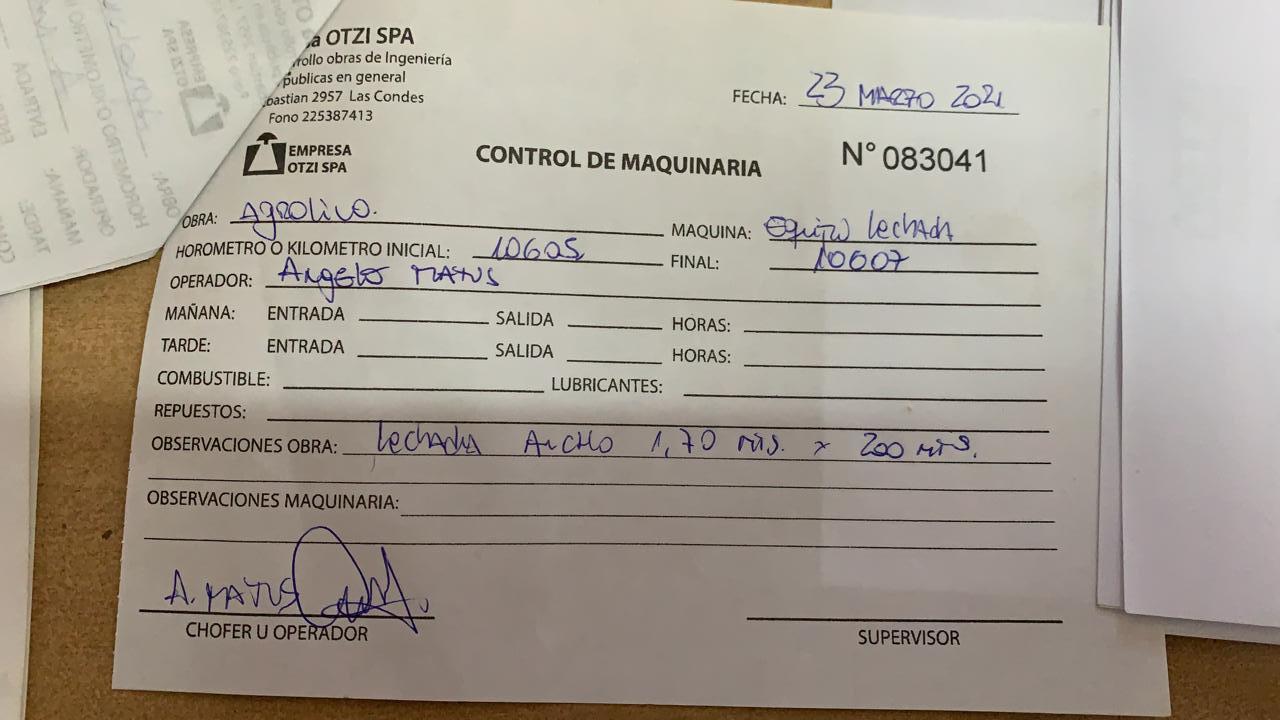 a OTZI SPA
rollo obras de Ingeniería
publicas en general
bastian 2957 Las Condes
Fono 225387413
FECHA: 23 MARZO 2021
EMPRESA
OTZI SPA
CONTROL DE MAQUINARIA
N° 083041
OBRA: Agrolivo.
MAQUINA: Equipo lechada
HOROMETRO O KILOMETRO INICIAL: 10605
FINAL: 10607
OPERADOR: Angelo MATUS
MAÑANA: ENTRADA SALIDA HORAS:
TARDE: ENTRADA SALIDA HORAS:
COMBUSTIBLE: LUBRICANTES:
REPUESTOS:
OBSERVACIONES OBRA: lechada ANCHO 1,70 mts. x 200 mts.
OBSERVACIONES MAQUINARIA:
A. MATUS
CHOFER U OPERADOR
SUPERVISOR